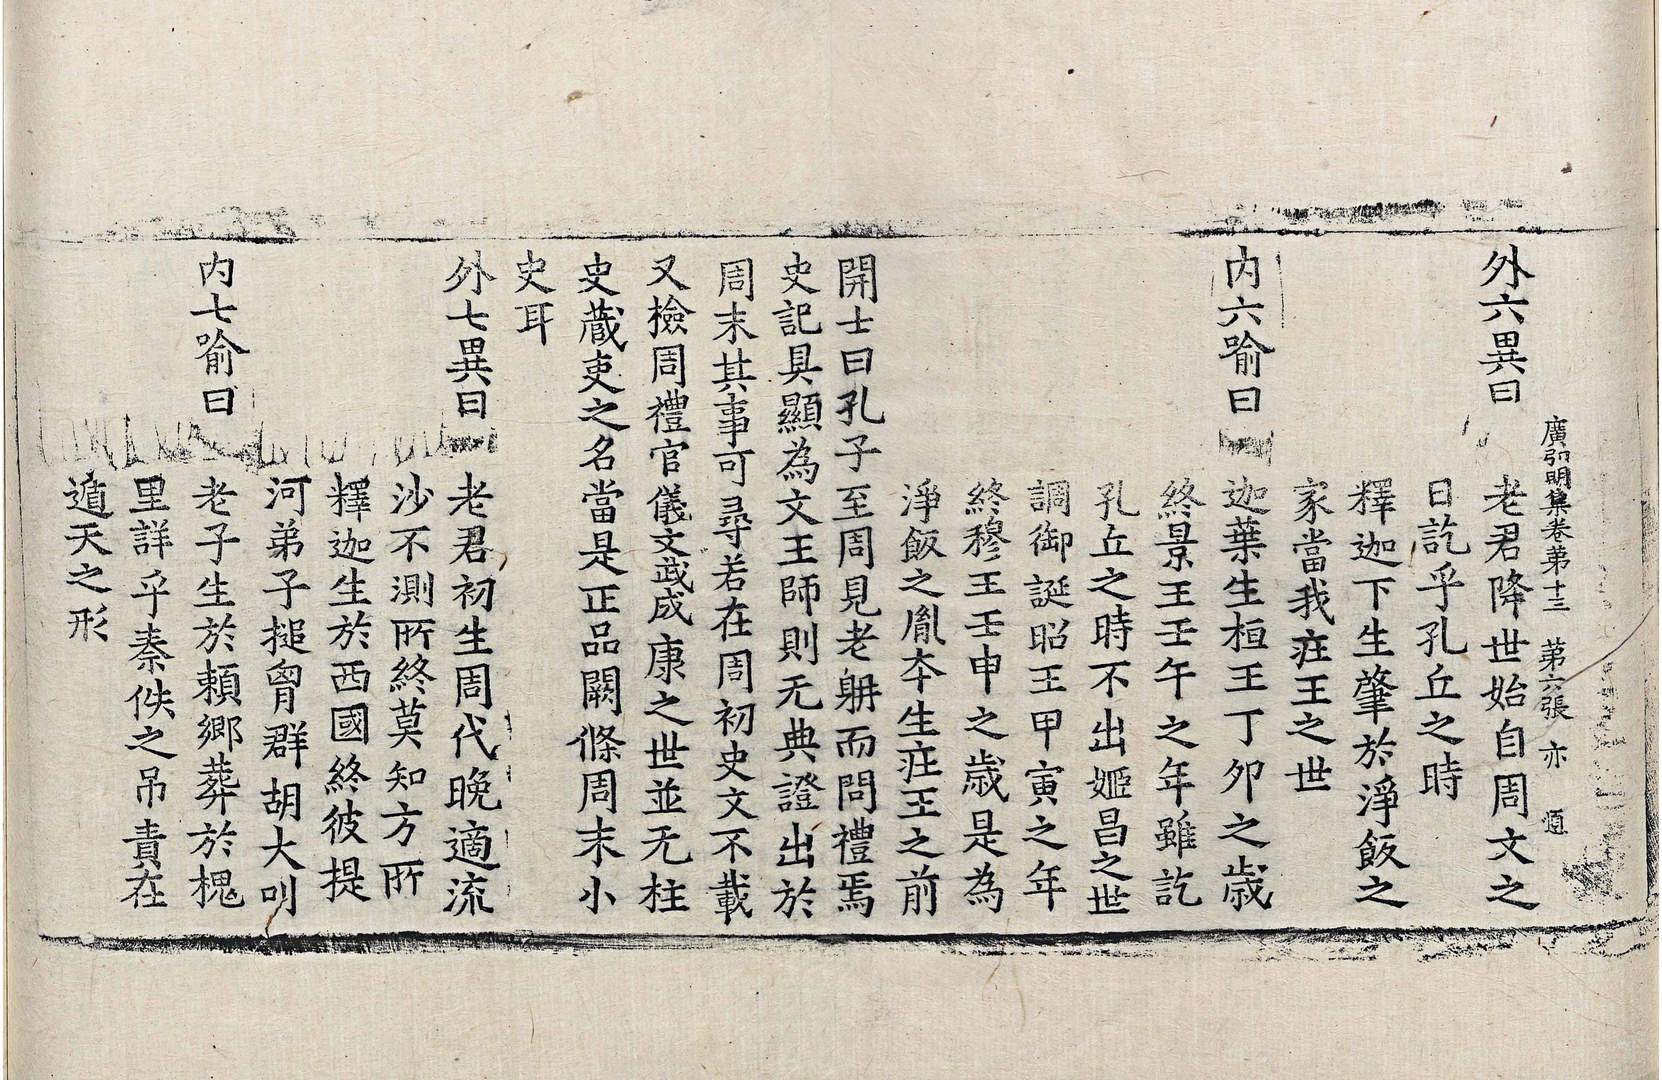 廣弘明集卷第十三 第六張 亦
外六異曰 老君降世始自周文之
日訖乎孔丘之時
釋迦下生肇於淨飯之
家當我疘王之世
内六喻曰 迦葉生桓王丁夘之歲
終景王壬午之年雖訖
孔丘之時不出姬昌之世
調御誕昭王甲寅之年
終穆王壬申之歲是為
淨飯之胤夲生疘王之前
開士曰孔子至周見老聃而問禮焉
史記具顯為文王師則无典證出於
周末其事可尋若在周初史文不載
又檢周禮官儀文武成康之世並无柱
史藏吏之名當是正品闕條周末小
史耳
外七異曰 老君初生周代晚適流
沙不測所終莫知方所
釋迦生於西國終彼提
河弟子搥胷群胡大叫
内七喻曰 老子生於賴鄉葬於槐
里詳乎秦佚之吊責在
遁天之形